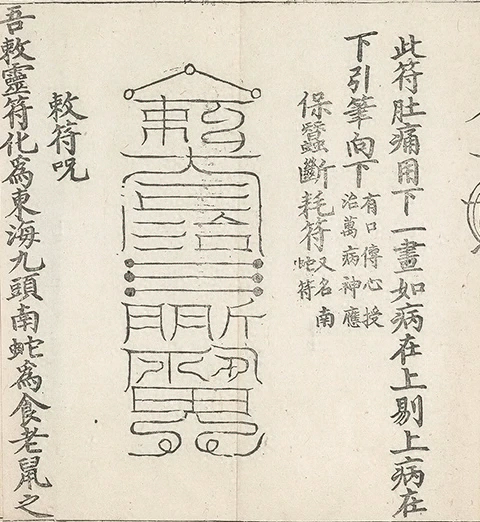 此符肚痛用下一畫如病在上剔上病在
下引筆向下
有口傳心授
治萬病神應
保蠶斷耗符
又名南
蛇符
敕符呪
吾敕靈符化爲東海九頭南蛇爲食老鼠之